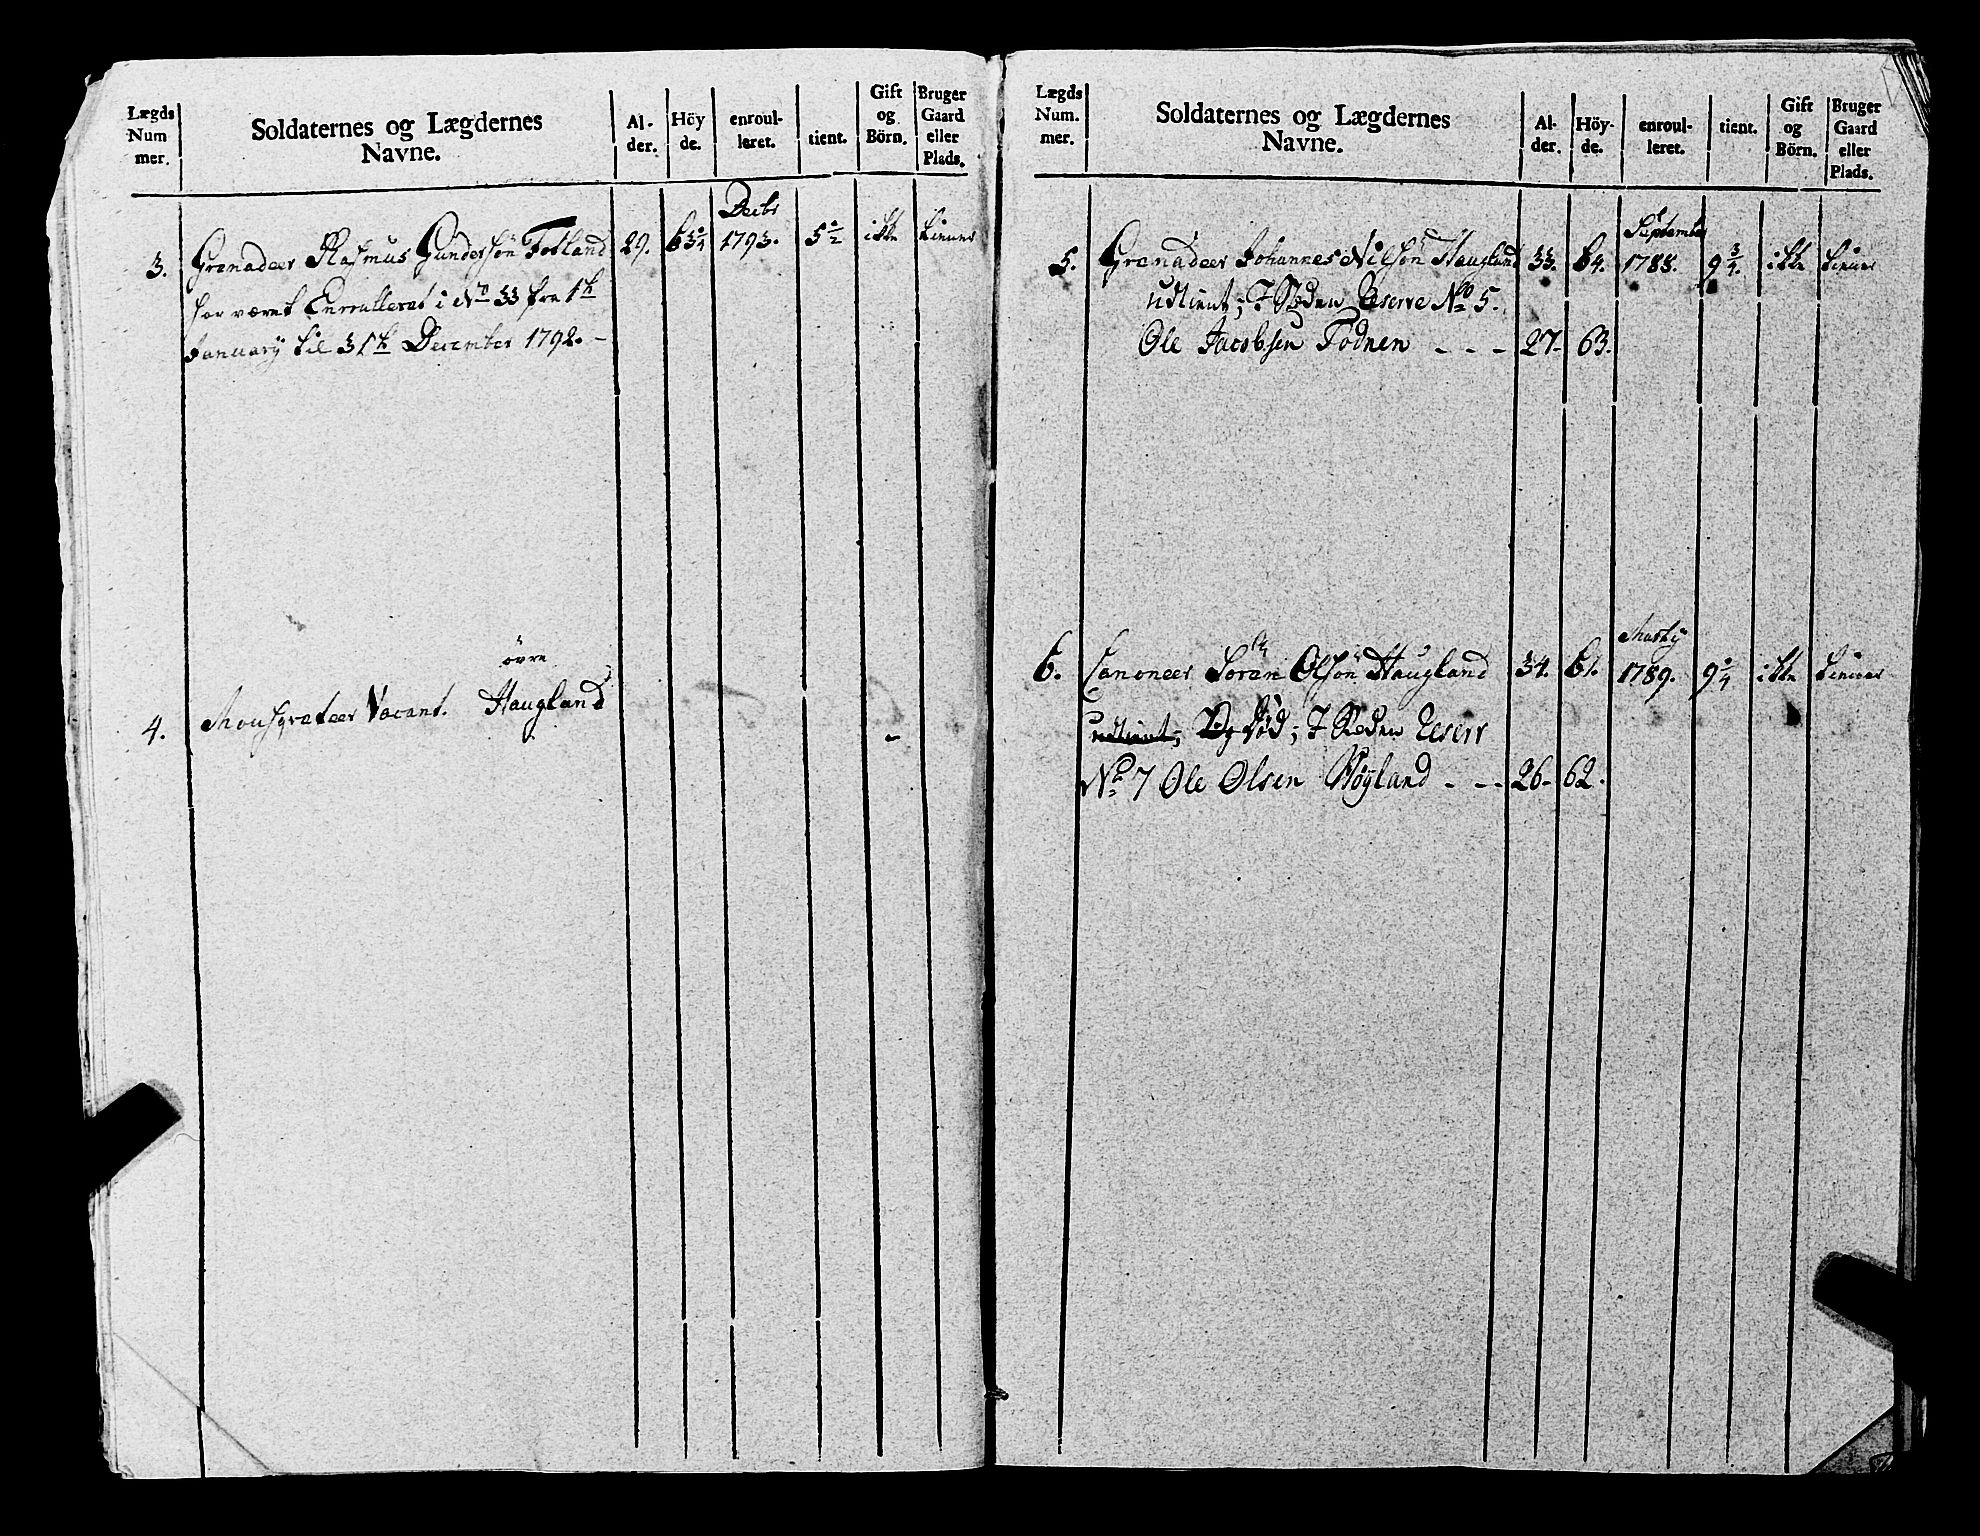 Lægds Num mer.
Soldaternes og Lægdernes Navne.
Al- der.
Höy de.
enroul- leret.
tient.
Gift og Börn.
Bruger Gaard eller Plads.
Decbr
3. Granadeer Rasmus Gundersön Fosland 29. 63¾ 1793. 5½ ikke tiener
har været Enrulleret i No 33 fra 1te
January til 31te December 1792. -
øvre
4. Mousqveteer Vacant. Haugland -
Lægds Num. mer.
Soldaternes og Lægdernes Navne.
Al- der.
Höy- de.
enroul- leret.
tient.
Gift og Börn.
Bruger Gaard eller Plads.
September
5. Granadeer Johannes Nilsön Haugland 33. 64. 1788. 9¾. ikke tiener
udtient; I Steden Reserve No 5.
Ole Jacobsen Fodnen - - - 27- 63.
Marty
6. Canoneer Sören Olsön Haugland 34. 61. 1789. 9¼ ikke tiener
udtient; Død; I Steden Reserv
No 7 Ole Olsen Høyland - - - 26- 62.